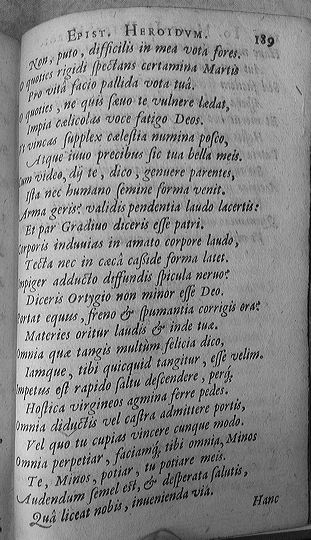 EPIST. HEROIDVM. 189
Non, puto, difficilis in mea vota fores.
O quoties rigidi spectans certamina Martis
Pro vitâ facio pallida vota tuâ.
O quoties, ne quis sæuo te vulnere lædat,
Impia cælicolas voce fatigo Deos.
Vt vincas supplex cælestia numina posco,
Atque iuuo precibus sic tua bella meis.
Cum video, dij te, dico, genuere parentes,
Ista nec humano semine forma venit.
Arma geris? validis pendentia laudo lacertis:
Et par Gradiuo diceris esse patri.
Corporis induuias in amato corpore laudo,
Tecta nec in cæcâ casside forma latet.
Impiger adducto diffundis spicula neruo?
Diceris Ortygio non minor esse Deo.
Portat equus, freno & spumantia corrigis ora?
Materies oritur laudis & inde tuæ.
Omnia quæ tangis multùm felicia dico,
Iamque, tibi quicquid tangitur, esse velim.
Impetus est rapido saltu descendere, perq́;
Hostica virgineos agmina ferre pedes.
Omnia diductis vel castra admittere portis,
Vel quo tu cupias vincere cunque modo.
Omnia perpetiar, faciamq́; tibi omnia, Minos
Te, Minos, potiar, tu potiare meis.
Audendum semel est, & desperata salutis,
Quâ liceat nobis, inuenienda via.
Hanc